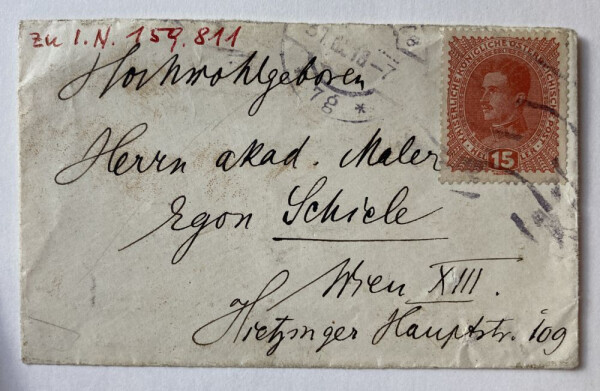 zu I.N. 159.811
Hochwohlgeboren
Herrn akad. Maler
Egon Schiele
Wien XIII.
Hietzinger Hauptstr. 109
7g *
KAISERLICHE KÖNIGLICHE ÖSTERREICHISCHE POST
15